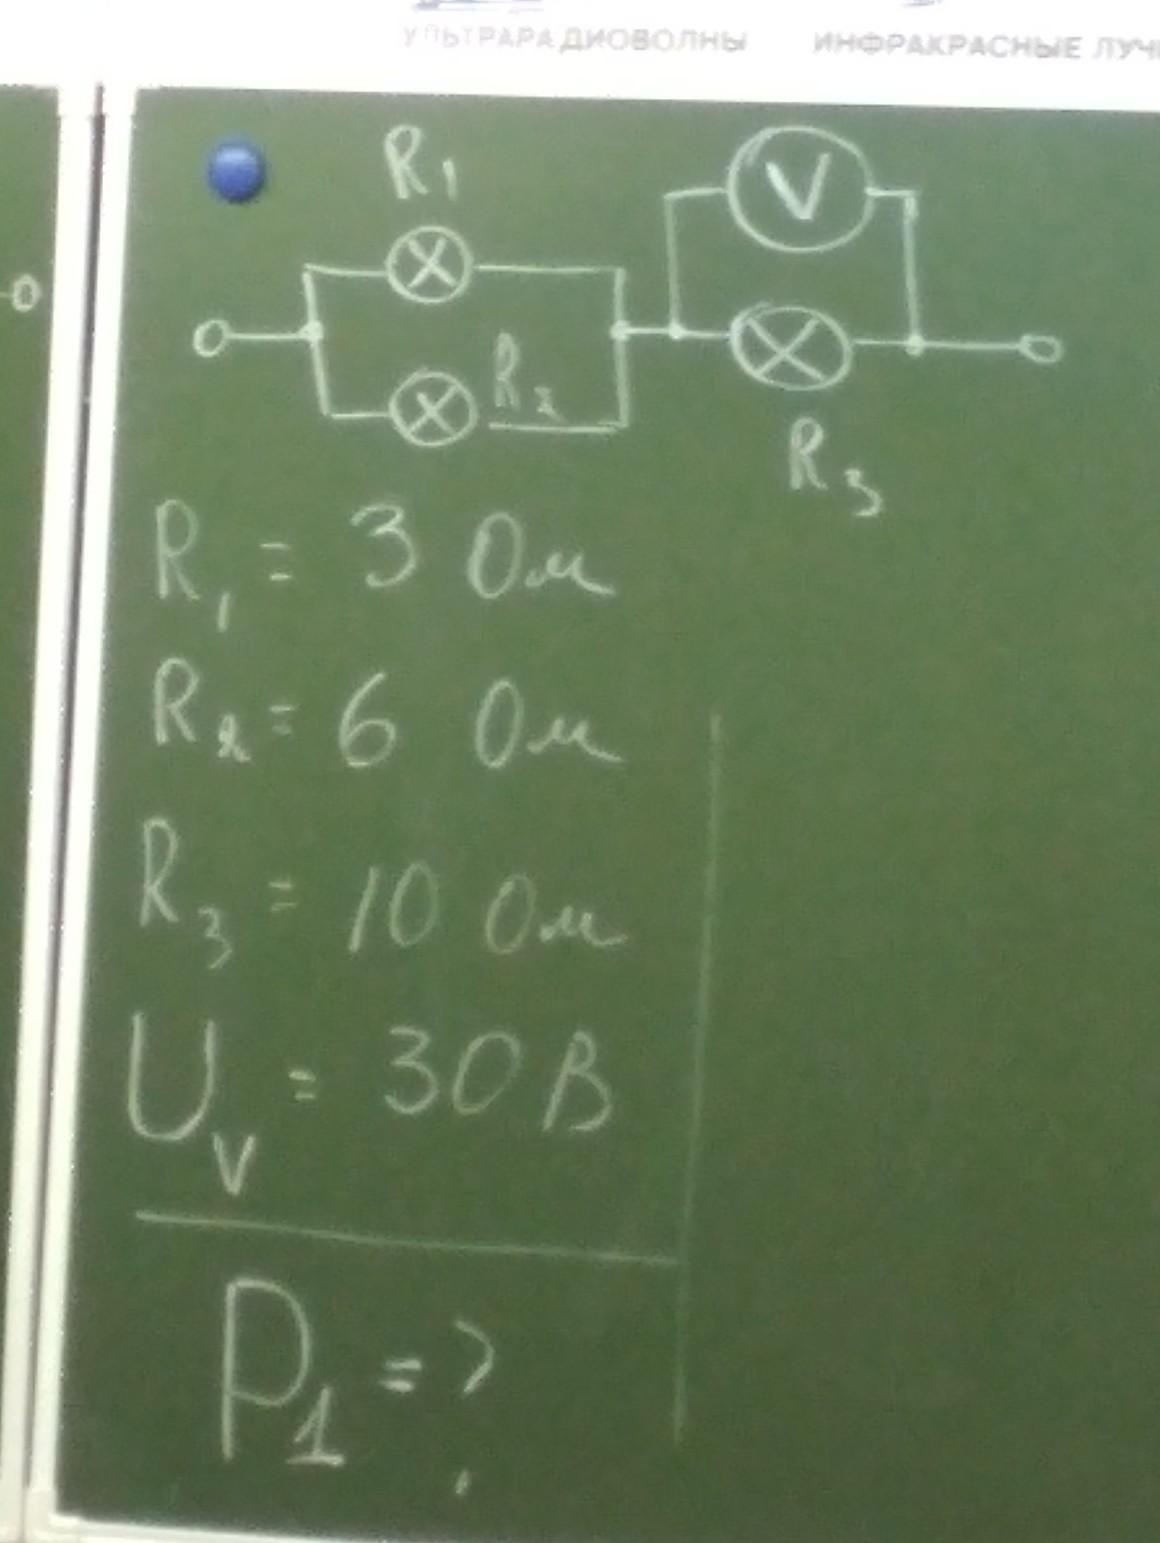 УЛЬТРАРАДИОВОЛНЫ ИНФРАКРАСНЫЕ ЛУЧ
R₁
V
R₂
R₃
R₁ = 3 Ом
R₂ = 6 Ом
R₃ = 10 Ом
U_V = 30 В
P₁ = ?